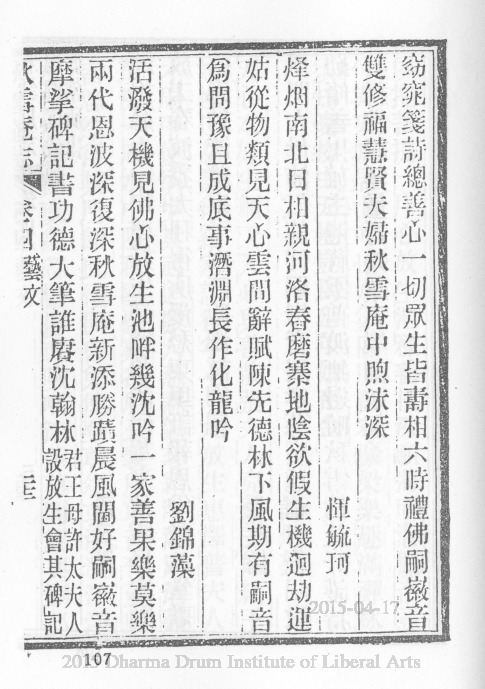 窈窕箋詩總善心一切眾生皆壽相六時禮佛嗣徽音
雙修福慧賢夫婦秋雪庵中煦沫深
惲毓珂
烽烟南北日相親河洛舂磨寨地陰欲假生機迴劫運
姑從物類見天心雲間辭賦陳先德林下風期有嗣音
為問豫且成底事潛淵長作化龍吟
劉錦藻
活潑天機見佛心放生池畔幾沈吟一家善果樂莫樂
兩代恩波深復深秋雪庵新添勝蹟晨風閣好嗣徽音
摩挲碑記書功德大筆誰賡沈翰林君王母許太夫人設放生會其碑記
秋雪庵志 卷四 藝文 二十三
107
2015-04-17
Dharma Drum Institute of Liberal Arts